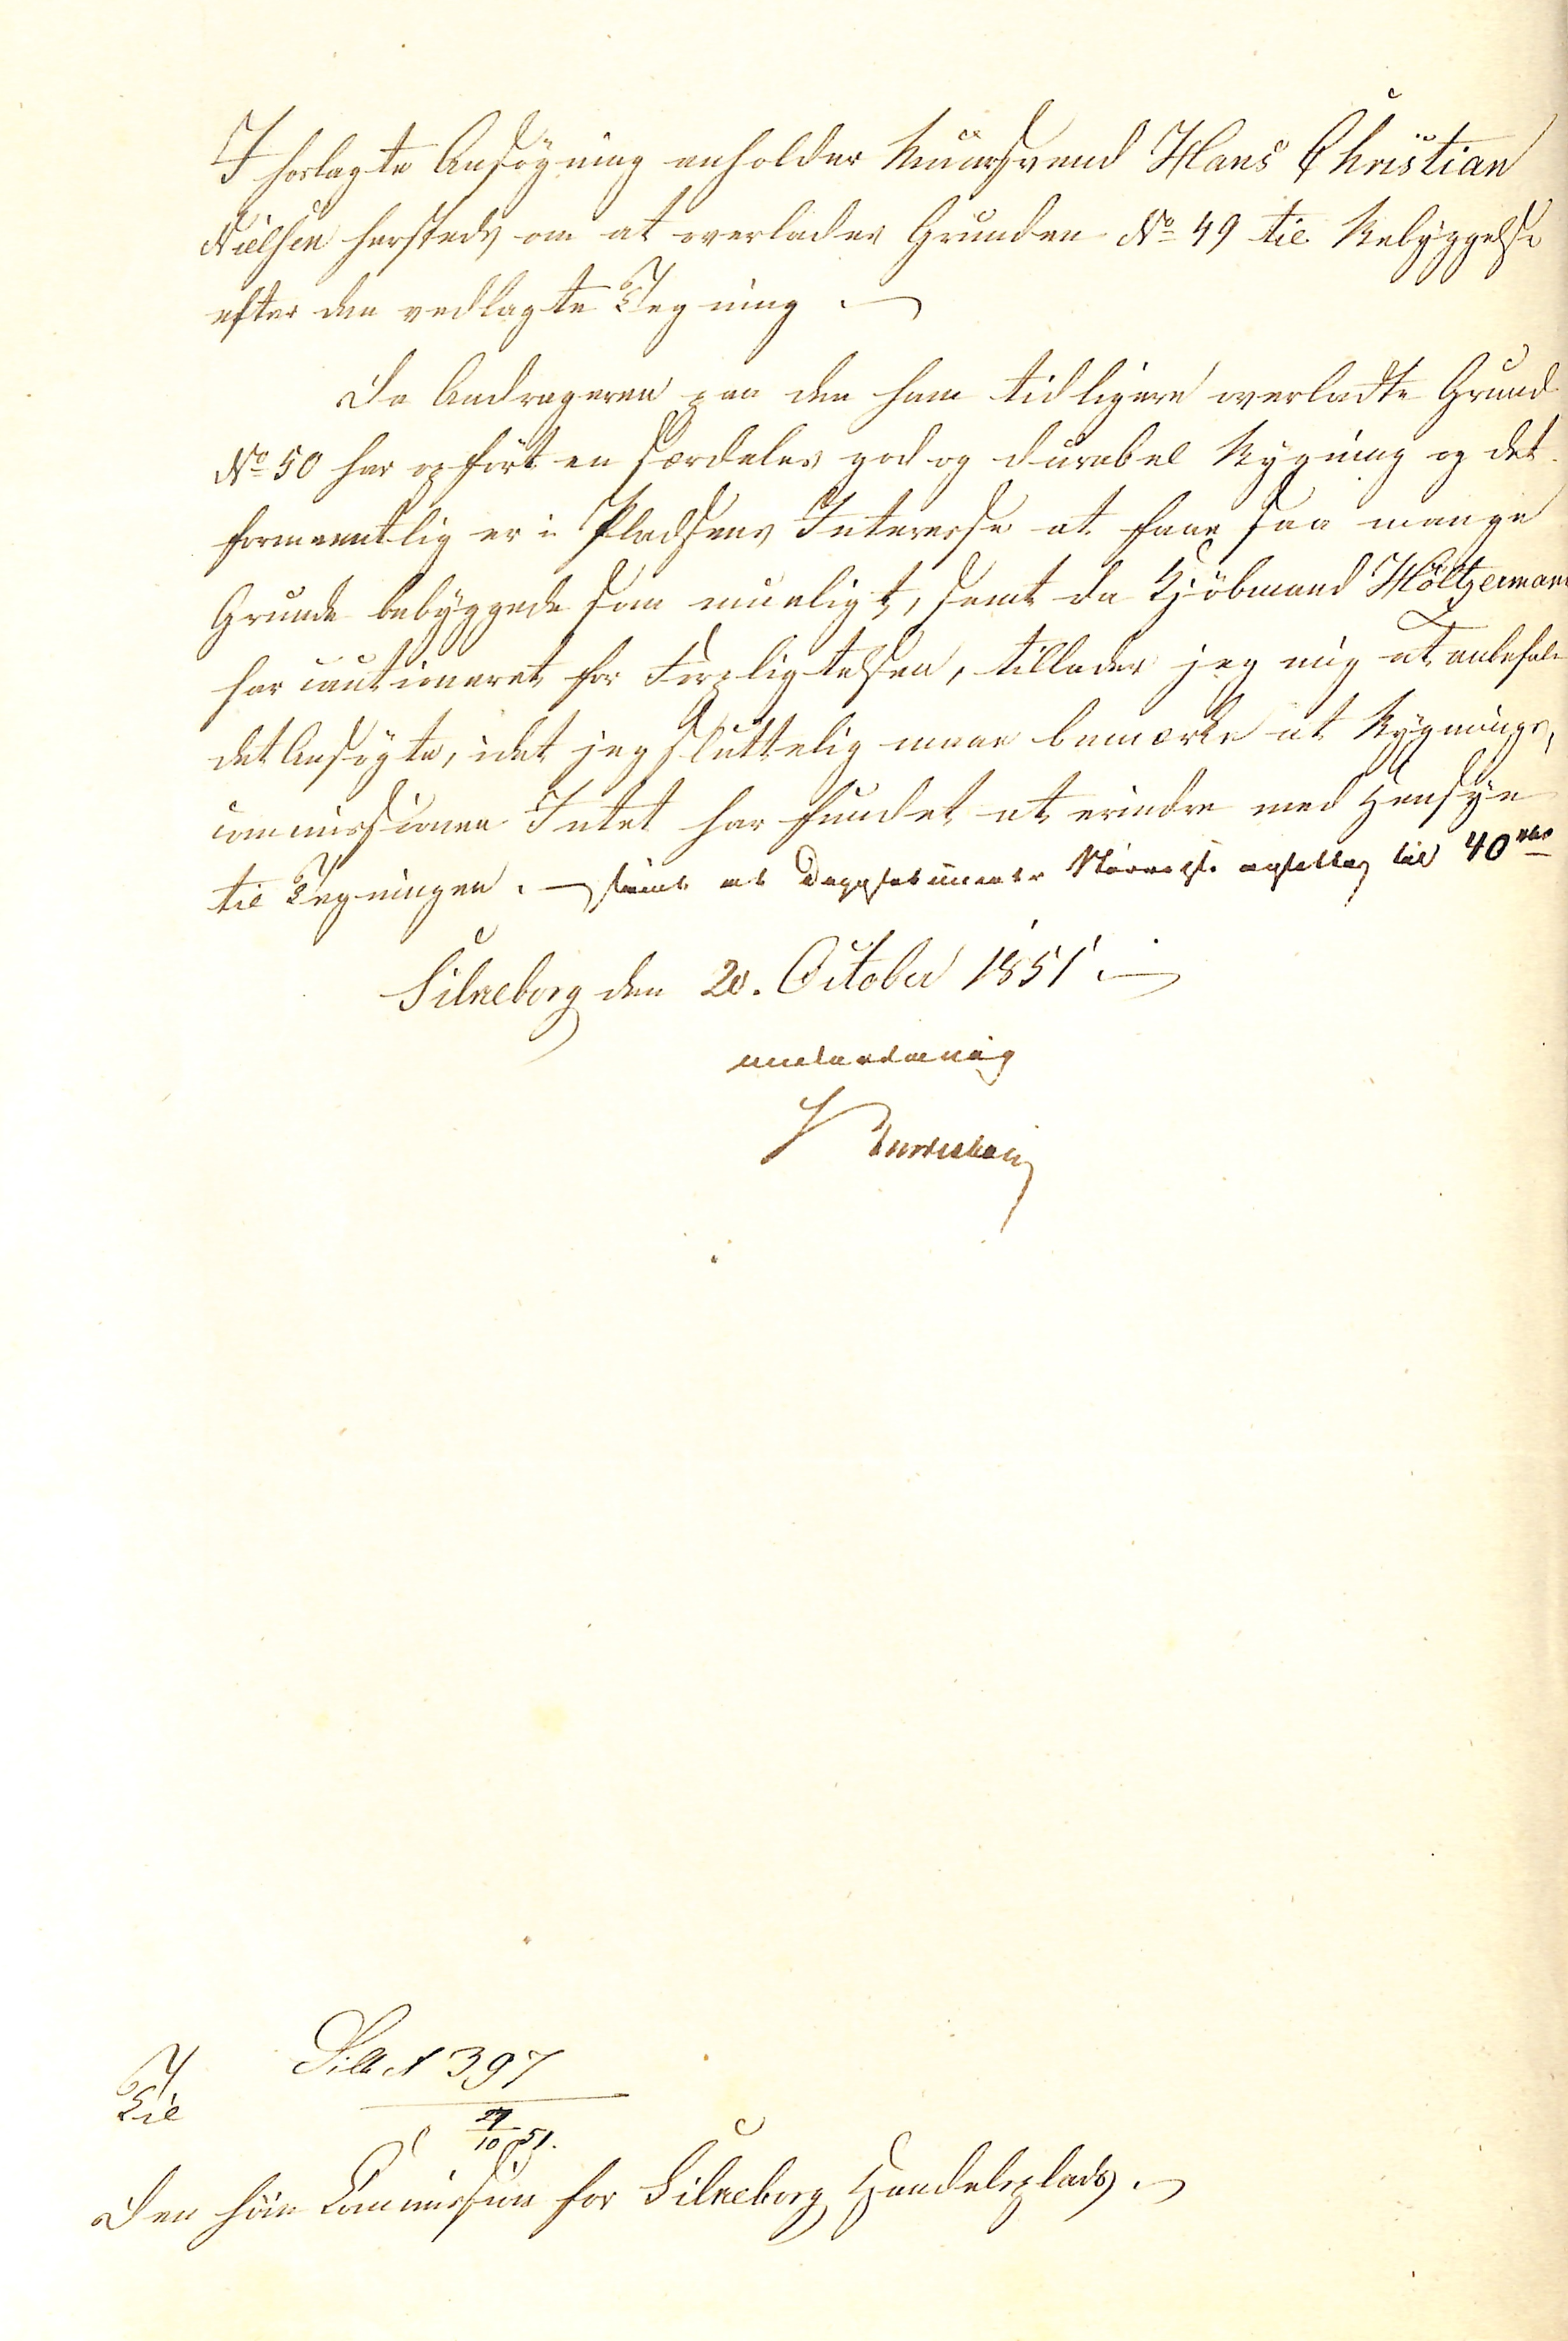 I hoslagte Ansøgning anholder Muursvend Hans Christian
Nielsen hersteds om at overlades Grunden No 49 til Bebyggelse
efter den vedlagte Tegning.
Da Andrageren paa den ham tidligere overladte Grund
No 50 har opført en særdeles god og durabel Bygning og det
formeentlig er i Pladsens Interesse at faae saa mange
Grunde bebyggede som mueligt, samt da Kjöbmand Höltzermann
har cautioneret for Forpligtelsen, tillader jeg mig at anbefale
det Ansøgte, idet jeg sluttelig maae bemærke at Bygnings-
commissionen Intet har fundet at erindre med Hensyn
til Tegningen. – samt at til 40
Silkeborg den 20. October 1851.
underdanig
Silk No 397
Til
27/10 51.
Den høie Commission for Silkeborg Handelsplads.